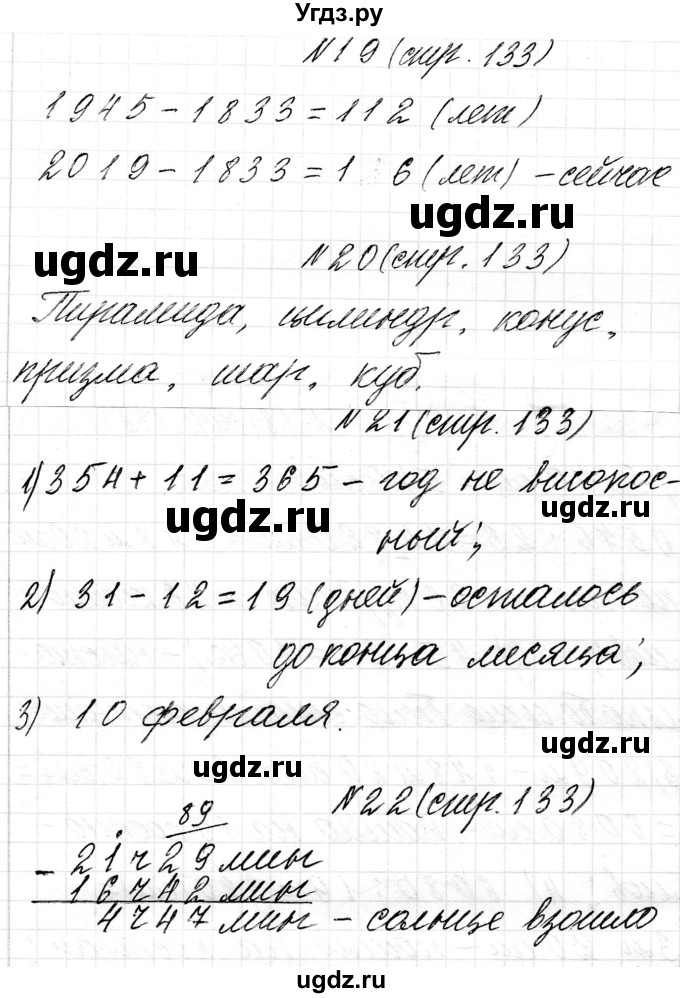 Угдз.ру
№19 (стр. 133)
1945 - 1833 = 112 (лет)
2019 - 1833 = 1 6 (лет) - сейчас
ugdz.ru
ugdz.ru
№20 (стр. 133)
Пирамида, цилиндр, конус,
призма, шар, куб.
№21 (стр. 133)
1) 354 + 11 = 365 - год не високос-
ugdz.ru
ugdz.ru
ный;
2) 31 - 12 = 19 (дней) - осталось
до конца месяца;
3) 10 февраля.
ugdz.ru
ugdz.ru
№22 (стр. 133)
89
- 21 ч 29 мин
16 ч 42 мин
4 ч 47 мин - солнце взошло
ugdz.ru